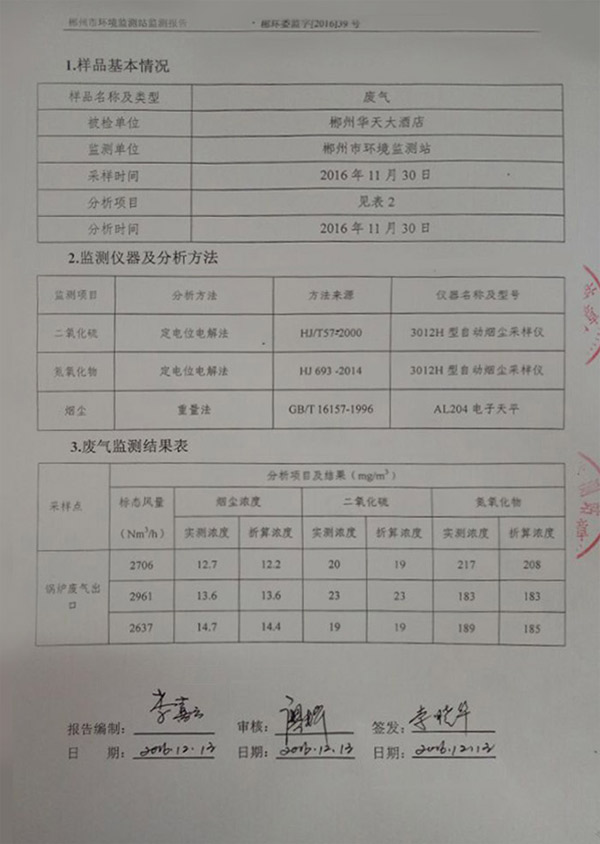 郴州市环境监测站监测报告 郴环委监字[2016]39号
1.样品基本情况
样品名称及类型 废气
被检单位 郴州华天大酒店
监测单位 郴州市环境监测站
采样时间 2016年11月30日
分析项目 见表2
分析时间 2016年11月30日
2.监测仪器及分析方法
监测项目 分析方法 方法来源 仪器名称及型号
二氧化硫 定电位电解法 HJ/T57-2000 3012H型自动烟尘采样仪
氮氧化物 定电位电解法 HJ 693-2014 3012H型自动烟尘采样仪
烟尘 重量法 GB/T 16157-1996 AL204电子天平
3.废气监测结果表
分析项目及结果（mg/m³）
采样点 标态风量 烟尘浓度 二氧化硫 氮氧化物
（Nm³/h） 实测浓度 折算浓度 实测浓度 折算浓度 实测浓度 折算浓度
2706 12.7 12.2 20 19 217 208
锅炉废气出口 2961 13.6 13.6 23 23 183 183
2637 14.7 14.4 19 19 189 185
报告编制： 审核： 签发：李晓华
日 期：2016.12.13 日期：2016.12.13 日期：2016.12.13